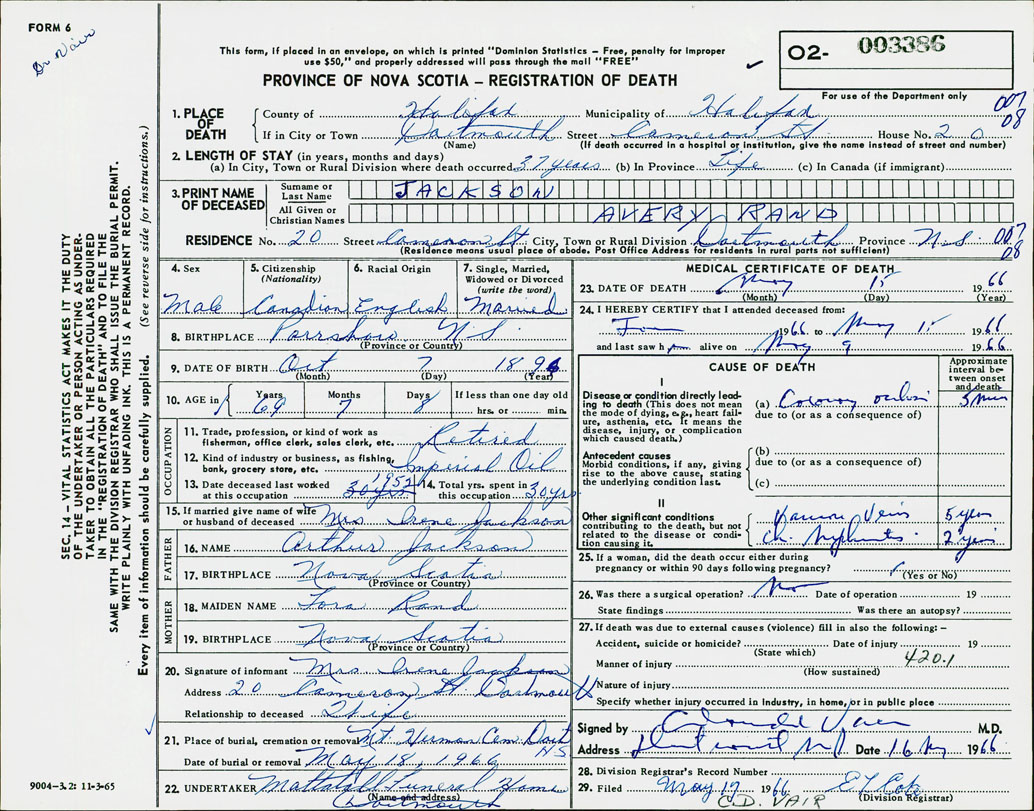 FORM 6
Dr Vair
This form, if placed in an envelope, on which is printed "Dominion Statistics – Free, penalty for improper
use $50," and properly addressed will pass through the mail "FREE"
PROVINCE OF NOVA SCOTIA – REGISTRATION OF DEATH
O2- 003386
For use of the Department only
007
08
1. PLACE OF DEATH County of Halifax Municipality of Halifax
If in City or Town Dartmouth Street Cameron St. House No. 20
(Name) (If death occurred in a hospital or institution, give the name instead of street and number)
2. LENGTH OF STAY (in years, months and days)
(a) In City, Town or Rural Division where death occurred 37 years (b) In Province Life (c) In Canada (if immigrant)
3. PRINT NAME OF DECEASED
Surname or Last Name JACKSON
All Given or Christian Names AVERY RAND
RESIDENCE No. 20 Street Cameron St. City, Town or Rural Division Dartmouth Province N.S. 007
08
(Residence means usual place of abode. Post Office Address for residents in rural parts not sufficient)
4. Sex Male
5. Citizenship (Nationality) Canadian
6. Racial Origin English
7. Single, Married, Widowed or Divorced (write the word) Married
8. BIRTHPLACE Parrsboro N.S.
(Province or Country)
9. DATE OF BIRTH Oct 7 1896
(Month) (Day) (Year)
10. AGE in Years 69 Months 7 Days 8 If less than one day old
hrs. or min.
OCCUPATION
11. Trade, profession, or kind of work as
fisherman, office clerk, sales clerk, etc. Retired
12. Kind of industry or business, as fishing,
bank, grocery store, etc. Imperial Oil
13. Date deceased last worked
at this occupation 30 yrs 1952
14. Total yrs. spent in
this occupation 30 yrs
15. If married give name of wife
or husband of deceased Mrs Irene Jackson
FATHER
16. NAME Arthur Jackson
17. BIRTHPLACE Nova Scotia
(Province or Country)
MOTHER
18. MAIDEN NAME Rand
19. BIRTHPLACE Nova Scotia
(Province or Country)
20. Signature of informant Mrs Irene Jackson
Address 20 Cameron St. Dartmouth
Relationship to deceased Wife
21. Place of burial, cremation or removal Mt. Herman Cem. Dart
N.S
Date of burial or removal May 18, 1966
22. UNDERTAKER Mattatall Funeral Home
(Name and address)
Dartmouth
MEDICAL CERTIFICATE OF DEATH
23. DATE OF DEATH May 15 1966
(Month) (Day) (Year)
24. I HEREBY CERTIFY that I attended deceased from:
1966 to May 15 1966
and last saw him alive on May 9 1966
CAUSE OF DEATH
Approximate interval between onset and death
I
Disease or condition directly lead-
ing to death (This does not mean
the mode of dying, e.g., heart fail-
ure, asthenia, etc. It means the
disease, injury, or complication
which caused death.)
(a) Coronary 5 min
due to (or as a consequence of)
Antecedent causes
Morbid conditions, if any, giving
rise to the above cause, stating
the underlying condition last.
(b)
due to (or as a consequence of)
(c)
II
Other significant conditions
contributing to the death, but not
related to the disease or condi-
tion causing it.
5 years
Ch. 2 years
25. If a woman, did the death occur either during
pregnancy or within 90 days following pregnancy?
(Yes or No)
26. Was there a surgical operation? No Date of operation 19
State findings Was there an autopsy?
27. If death was due to external causes (violence) fill in also the following: –
Accident, suicide or homicide? Date of injury 19
(State which)
Manner of injury 420.1
(How sustained)
Nature of injury
Specify whether injury occurred in Industry, in home, or in public place
Signed by M.D.
Address Date 16 May 1966
28. Division Registrar's Record Number
29. Filed May 17 1966
(Division Registrar)
C.D. VAIR
SEC. 14 – VITAL STATISTICS ACT MAKES IT THE DUTY
OF THE UNDERTAKER OR PERSON ACTING AS UNDER-
TAKER TO OBTAIN ALL THE PARTICULARS REQUIRED
IN THE "REGISTRATION OF DEATH" AND TO FILE THE
SAME WITH THE DIVISION REGISTRAR WHO SHALL ISSUE THE BURIAL PERMIT.
WRITE PLAINLY WITH UNFADING INK. THIS IS A PERMANENT RECORD.
Every item of information should be carefully supplied. (See reverse side for instructions.)
9004–3.2: 11-3-65